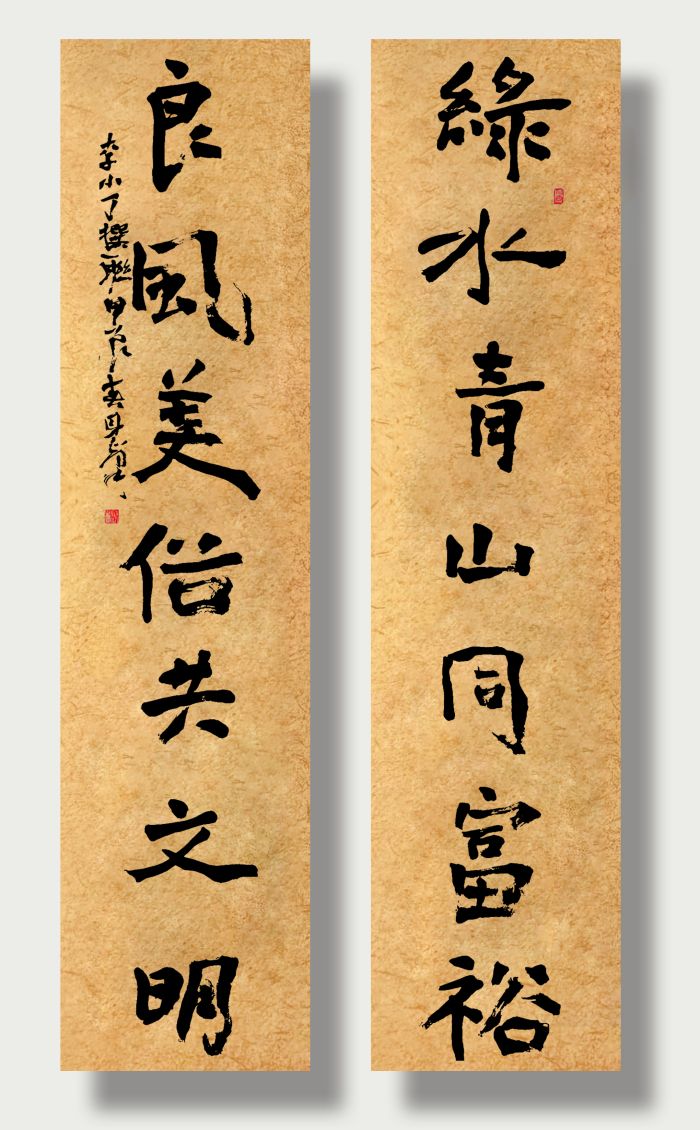 綠水青山同富裕
良風美俗共文明
李小丁撰聯甲辰